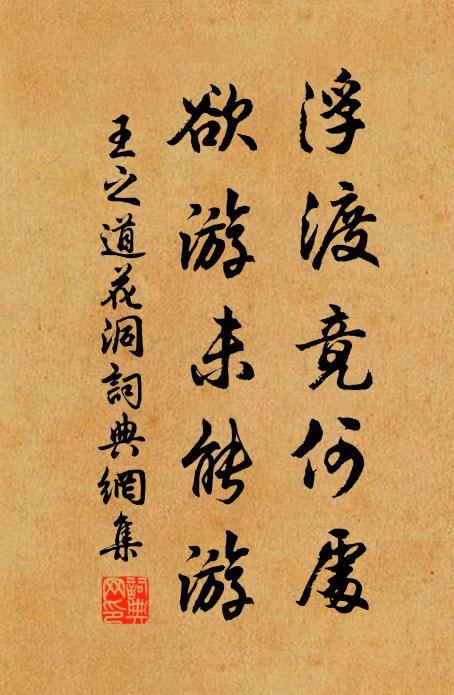 浮渡竟何處
欲游未能游
王之道花洞詞典網集
詞典
网印